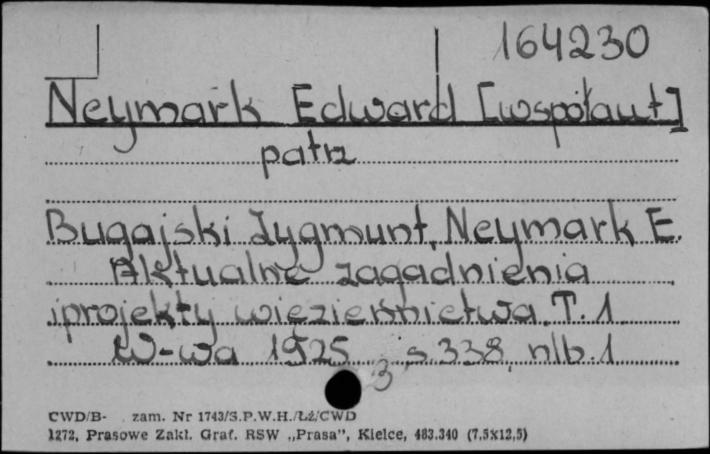 164230
Neymark Edward [współaut]
patrz
Bugajski Zygmunt, Neymark E.
Aktualne zagadnienia
i projekty więziennictwa. T. 1
W-wa 1925 s. 338, nlb. 1
3
CWD/B- zam. Nr 1743/S.P.W.H./Łź/CWD
1272, Prasowe Zakł. Graf. RSW „Prasa”, Kielce, 483.340 (7,5x12,5)